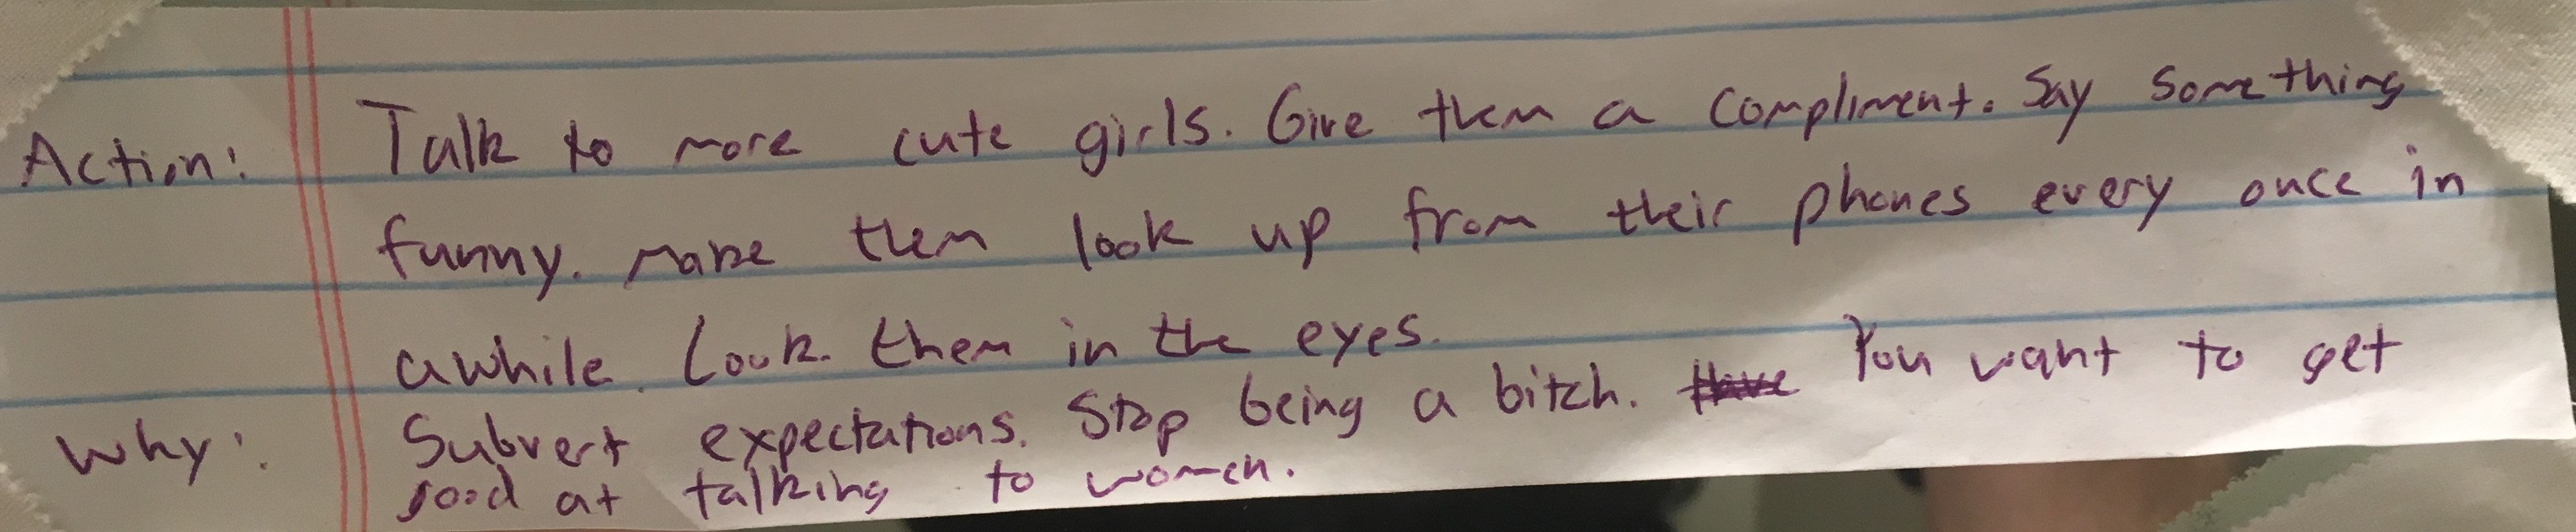 Action: Talk to more cute girls. Give them a compliment. Say something
funny. Make them look up from their phones every once in
awhile. Look them in the eyes.
Why: Subvert expectations. Stop being a bitch. You want to get
good at talking to women.